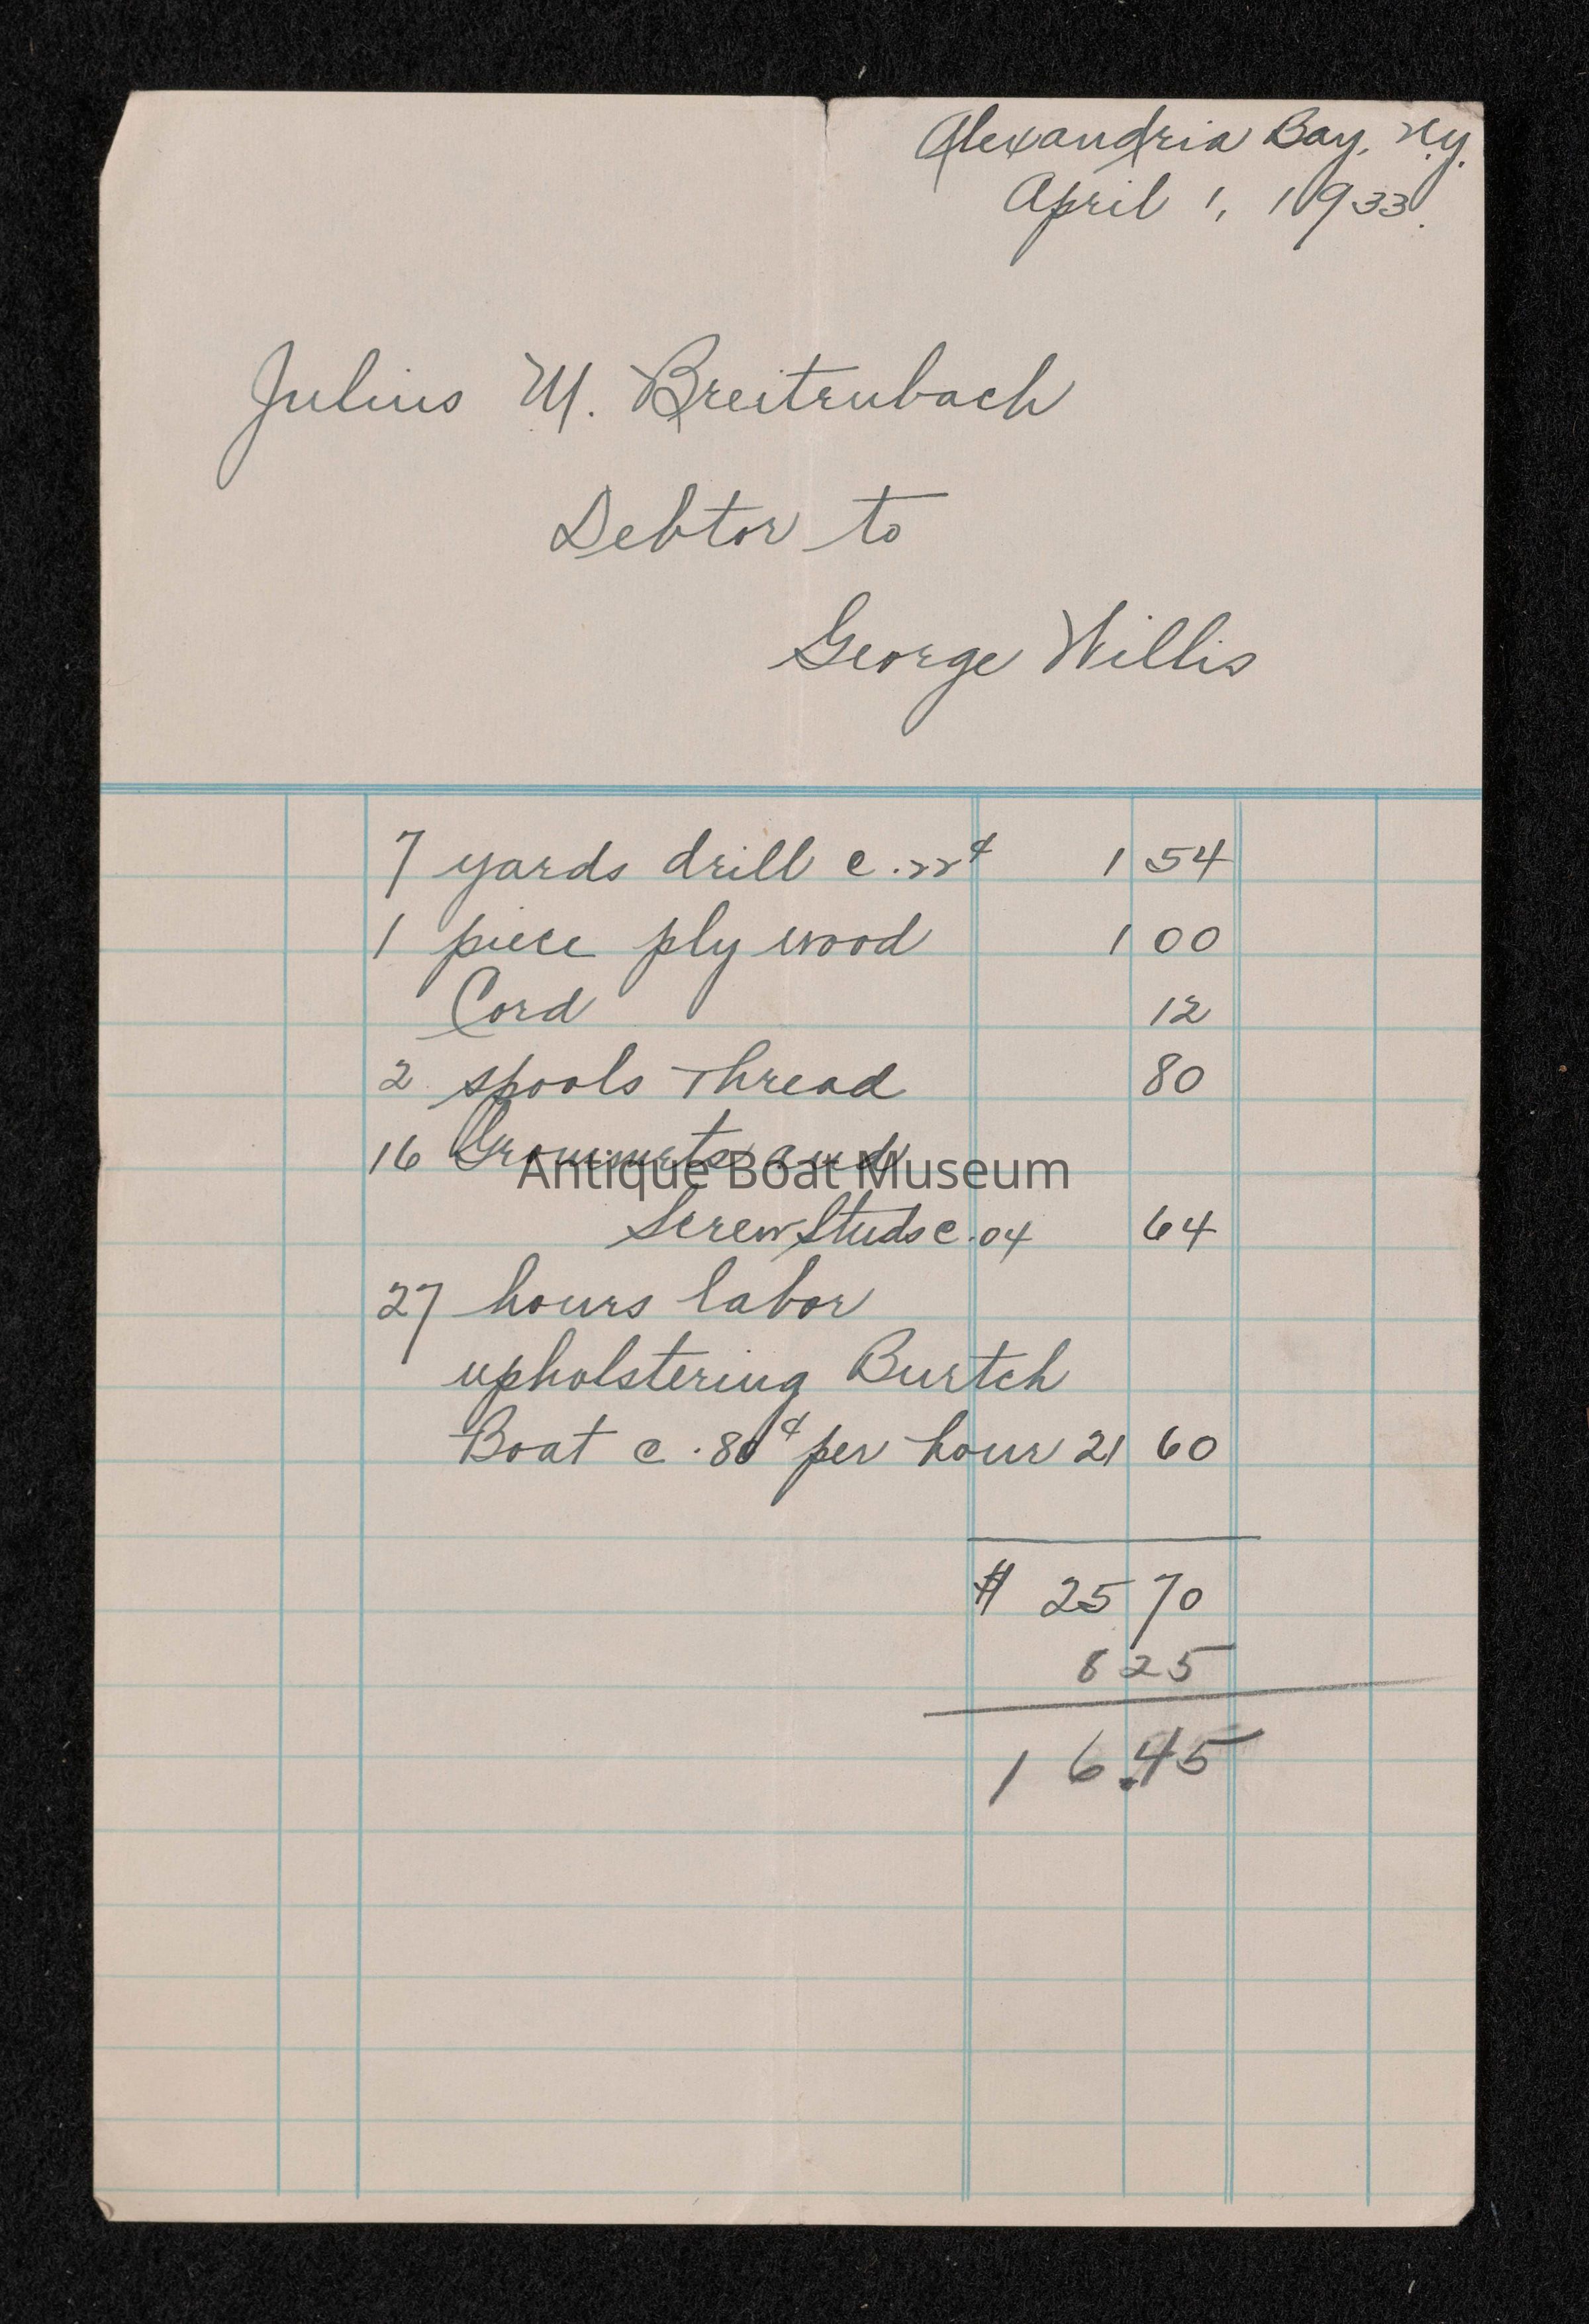 Alexandria Bay, N.y.
April 1, 1933.
Julius M. Breitenbach
Debtor to
George Willis
7 yards drill c .22¢ 1 54
1 piece ply wood 1 00
Cord 12
2 spools Thread 80
16 Grommets and
Antique Boat Museum
Screw Studs c .04 64
27 hours labor
upholstering Burtch
Boat c .80¢ per hour 21 60
$ 25 70
8 25
16.45